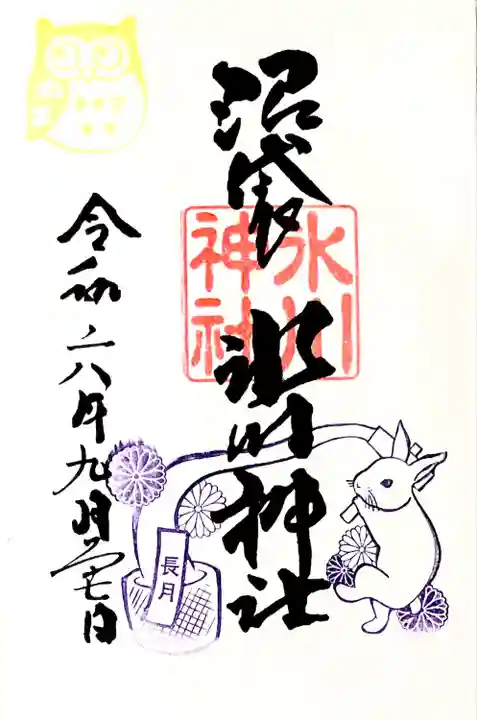 沼袋
氷川神社
氷川
神社
令和六年九月 日
長月